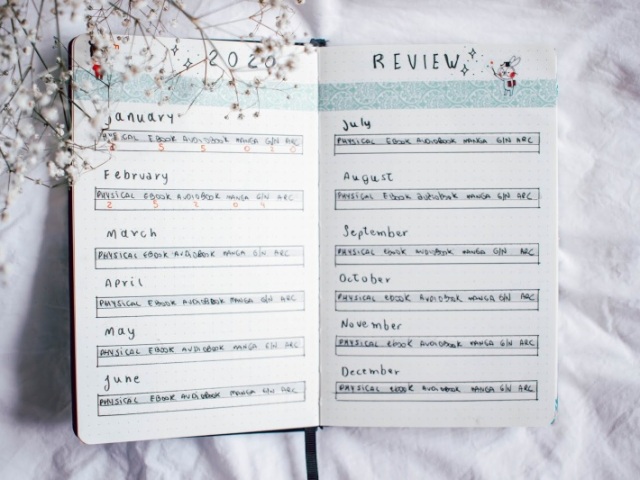 2020
January
PHYSICAL EBOOK AUDIOBOOK MANGA G/N ARC
5 5 0
February
PHYSICAL EBOOK AUDIOBOOK MANGA G/N ARC
2 5 2 0 4
March
PHYSICAL EBOOK AUDIOBOOK MANGA G/N ARC
April
PHYSICAL EBOOK AUDIOBOOK MANGA G/N ARC
May
PHYSICAL EBOOK AUDIOBOOK MANGA G/N ARC
June
PHYSICAL EBOOK AUDIOBOOK MANGA G/N ARC
REVIEW
July
PHYSICAL EBOOK AUDIOBOOK MANGA G/N ARC
August
PHYSICAL EBOOK AUDIOBOOK MANGA G/N ARC
September
PHYSICAL EBOOK AUDIOBOOK MANGA G/N ARC
October
PHYSICAL EBOOK AUDIOBOOK MANGA G/N ARC
November
PHYSICAL EBOOK AUDIOBOOK MANGA G/N ARC
December
PHYSICAL EBOOK AUDIOBOOK MANGA G/N ARC